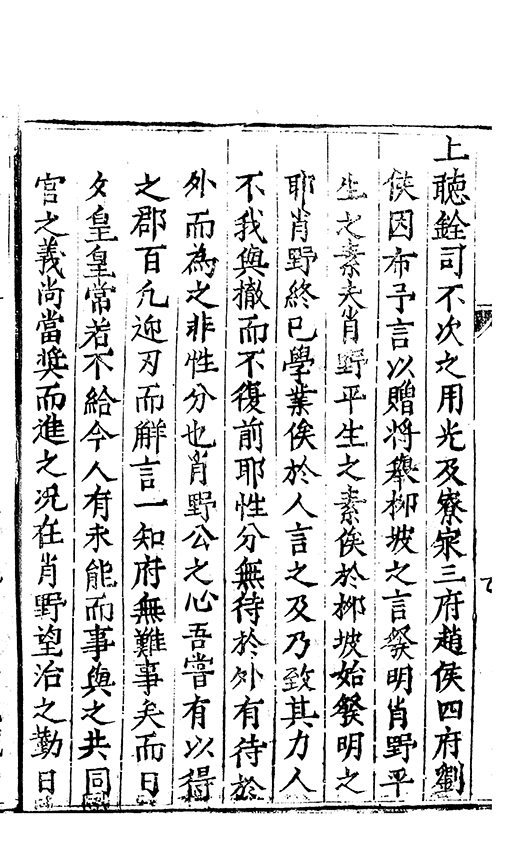 上聴銓司不次之用光及寮寀三府趙侯四府劉
侯因布予言以贈將舉柳坡之言發明肖野平
生之素夫肖野平生之素俟於柳坡始發明之
耶肖野終已學業俟於人言之及乃致其力人
不我與撤而不復前耶性分無待於外有待於
外而為之非性分也肖野公之心吾嘗有以得
之郡百凡迎刃而解言一知府無難事矣而日
夕皇皇常若不給今人有未能而事與之共同
官之義尚當奨而進之况在肖野望治之勤日